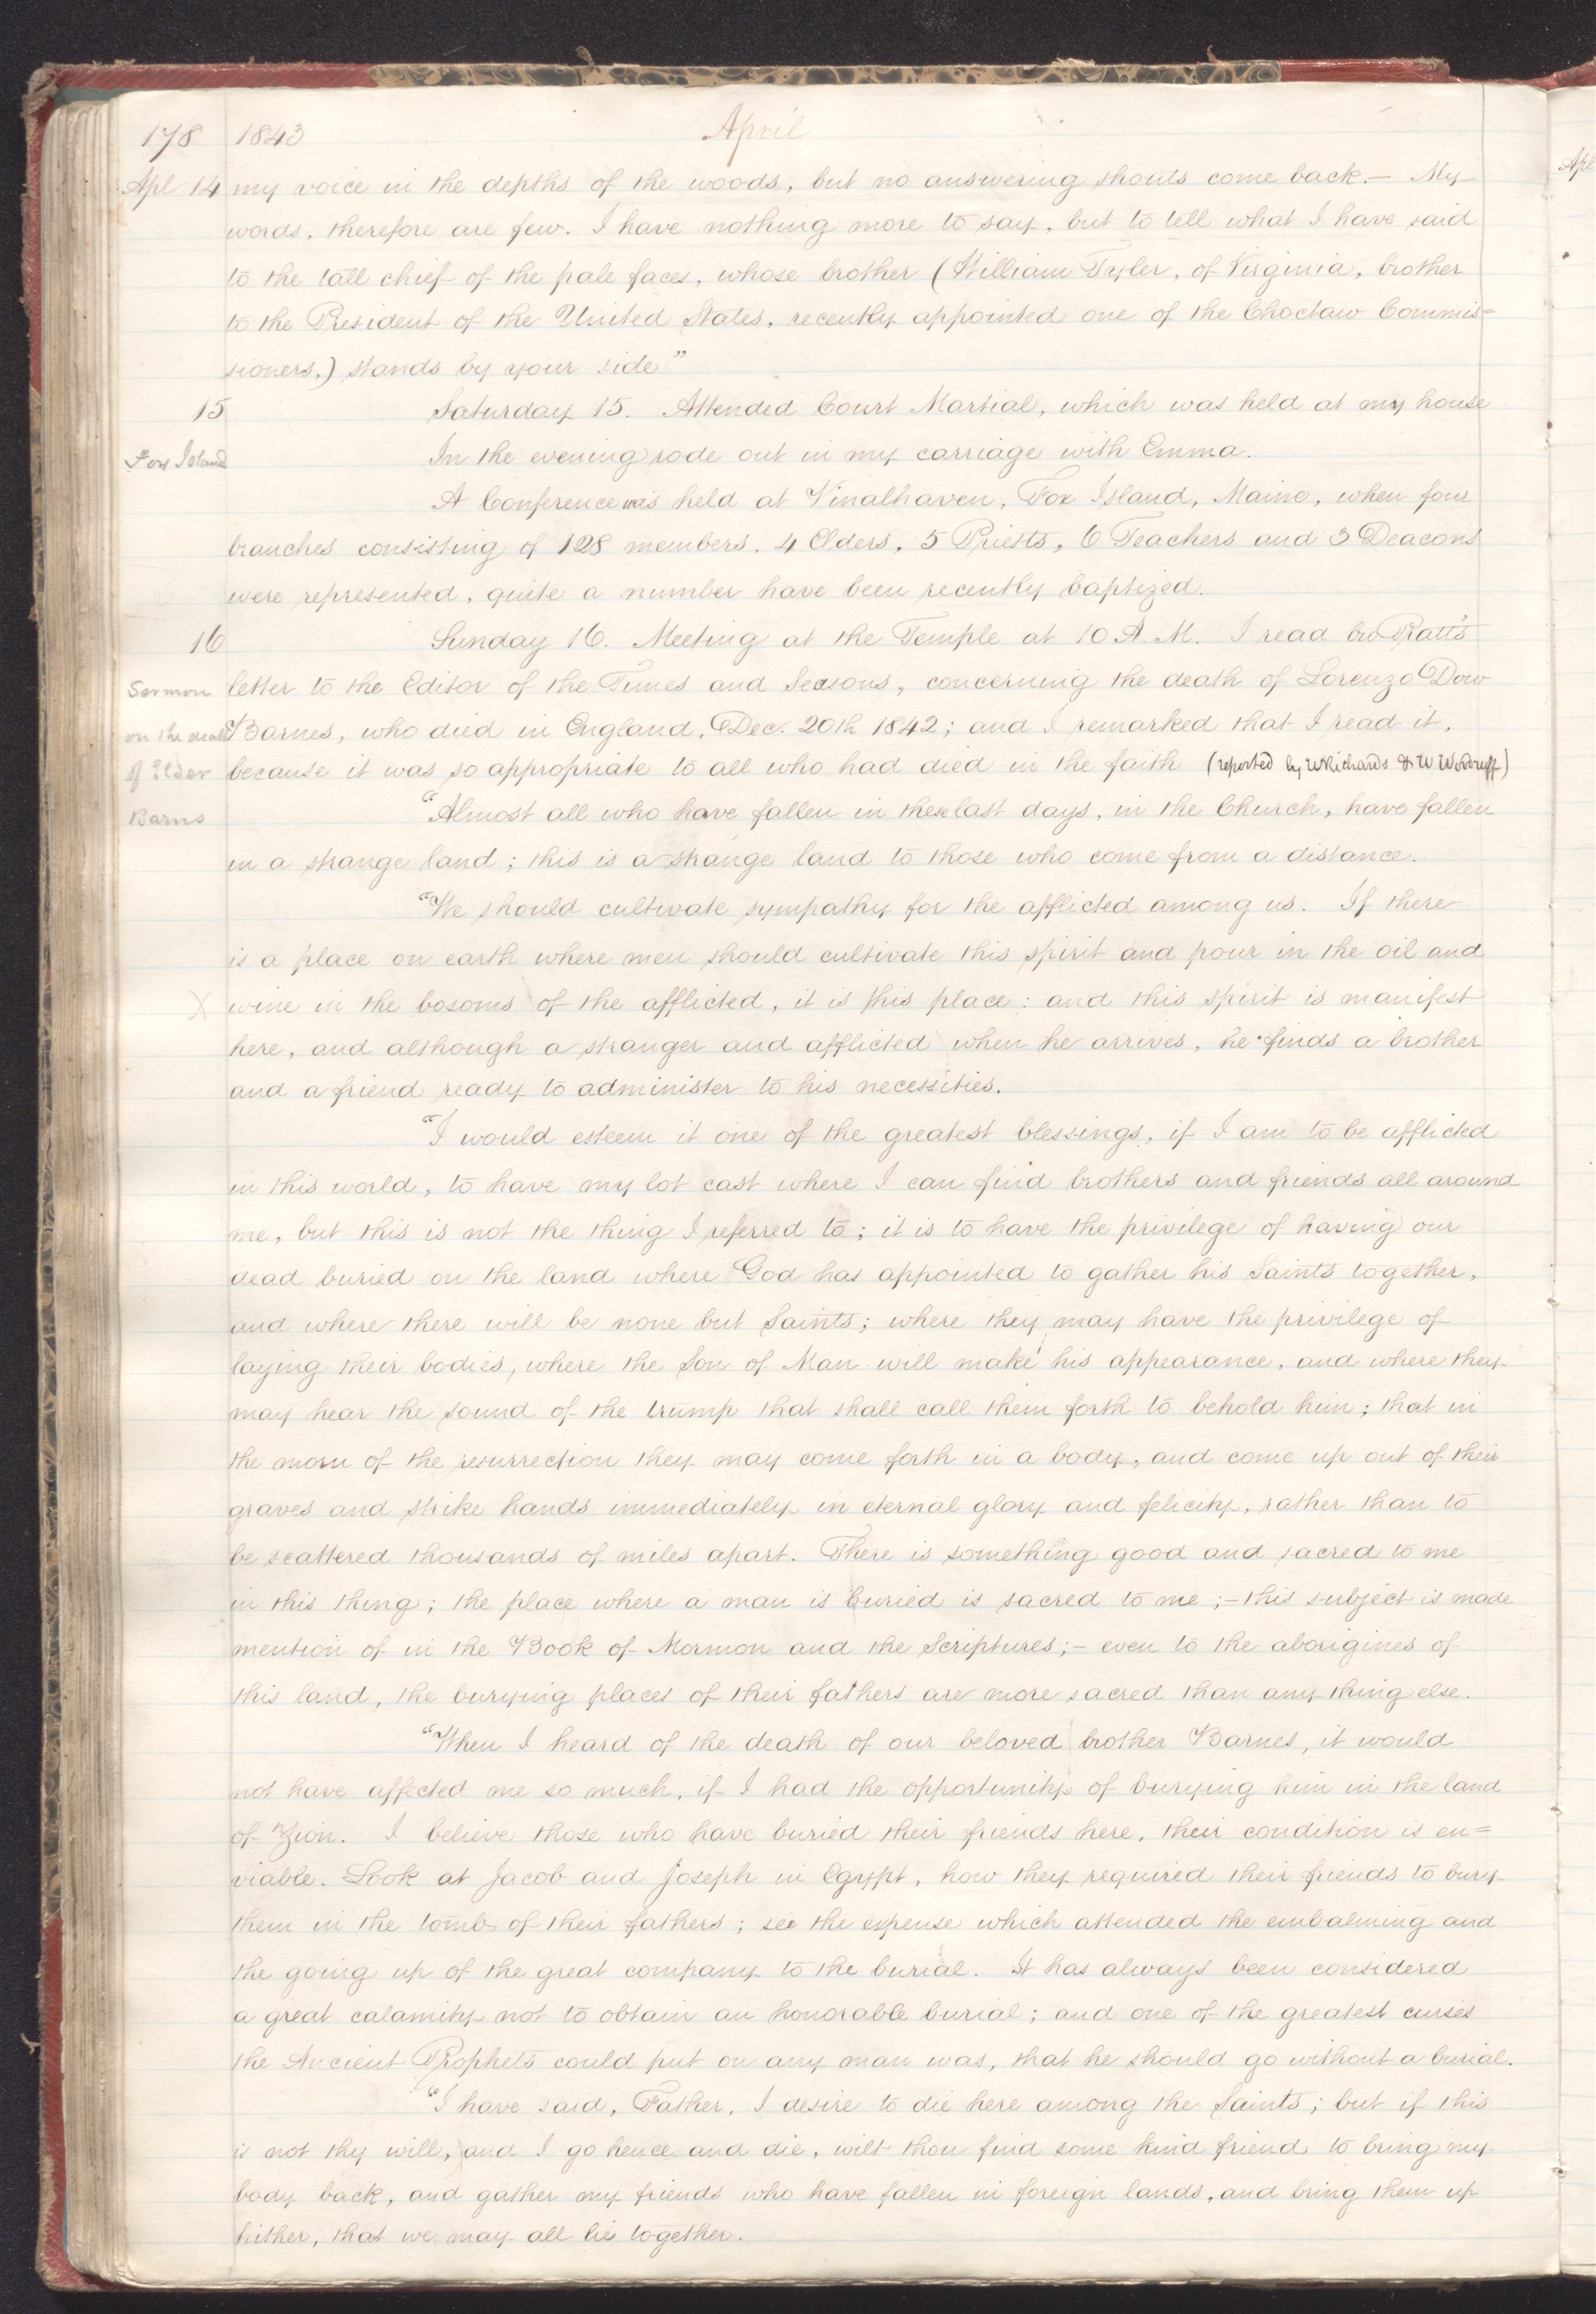 178 1843 April
Apl 14 my voice in the depths of the woods, but no answering shouts come back.— My
words, therefore are few. I have nothing more to say, but to tell what I have said
to the tall chief of the pale faces, whose brother (William Tyler, of Virginia, brother
to the President of the United States, recently appointed one of the Choctaw Commis=
sioners,) stands by your side"
15 Saturday 15. Attended Court Martial, which was held at my house
Fox Island In the evening rode out in my carriage with Emma.
A Conference was held at Vinalhaven, Fox Island, Maine, when four
branches consisting of 128 members. 4 Elders, 5 Priests, 6 Teachers and 3 Deacons
were represented, quite a number have been recently baptized.
16 Sunday 16. Meeting at the Temple at 10 A. M. I read bro Pratt's
Sermon letter to the Editor of the Times and Seasons, concerning the death of Lorenzo Dow
on the death Barnes, who died in England, Dec. 20th 1842; and I remarked that I read it,
of Elder because it was so appropriate to all who had died in the faith (reported by WRichards & W Woodruff)
Barns "Almost all who have fallen in these last days, in the Church, have fallen
in a strange land; this is a strange land to those who come from a distance.
"We should cultivate sympathy for the afflicted among us. If there
is a place on earth where men should cultivate this spirit and pour in the oil and
X wine in the bosoms of the afflicted, it is this place: and this spirit is manifest
here, and although a stranger and afflicted when he arrives, he finds a brother
and a friend ready to administer to his necessities.
"I would esteem it one of the greatest blessings, if I am to be afflicted
in this world, to have my lot cast where I can find brothers and friends all around
me, but this is not the thing I referred to; it is to have the privilege of having our
dead buried on the land where God has appointed to gather his Saints together,
and where there will be none but Saints; where they may have the privilege of
laying their bodies, where the Son of Man will make his appearance, and where they
may hear the sound of the trump that shall call them forth to behold him; that in
the morn of the resurrection they may come forth in a body, and come up out of their
graves and strike hands immediately in eternal glory and felicity, rather than to
be scattered thousands of miles apart. There is something good and sacred to me
in this thing; the place where a man is buried is sacred to me;— this subject is made
mention of in the Book of Mormon and the Scriptures;— even to the aborigines of
this land, the burying places of their fathers are more sacred than any thing else.
"When I heard of the death of our beloved brother Barnes, it would
not have affected me so much, if I had the opportunity of burying him in the land
of Zion. I believe those who have buried their friends here, their condition is en=
viable. Look at Jacob and Joseph in Egypt, how they required their friends to bury
them in the tomb of their fathers; see the expense which attended the embalming and
the going up of the great company to the burial. It has always been considered
a great calamity not to obtain an honorable burial; and one of the greatest curses
the Ancient Prophets could put on any man was, that he should go without a burial.
"I have said, Father, I desire to die here among the Saints; but if this
is not thy will, and I go hence and die, wilt thou find some kind friend to bring my
body back, and gather my friends who have fallen in foreign lands, and bring them up
hither, that we may all lie together.
Apl